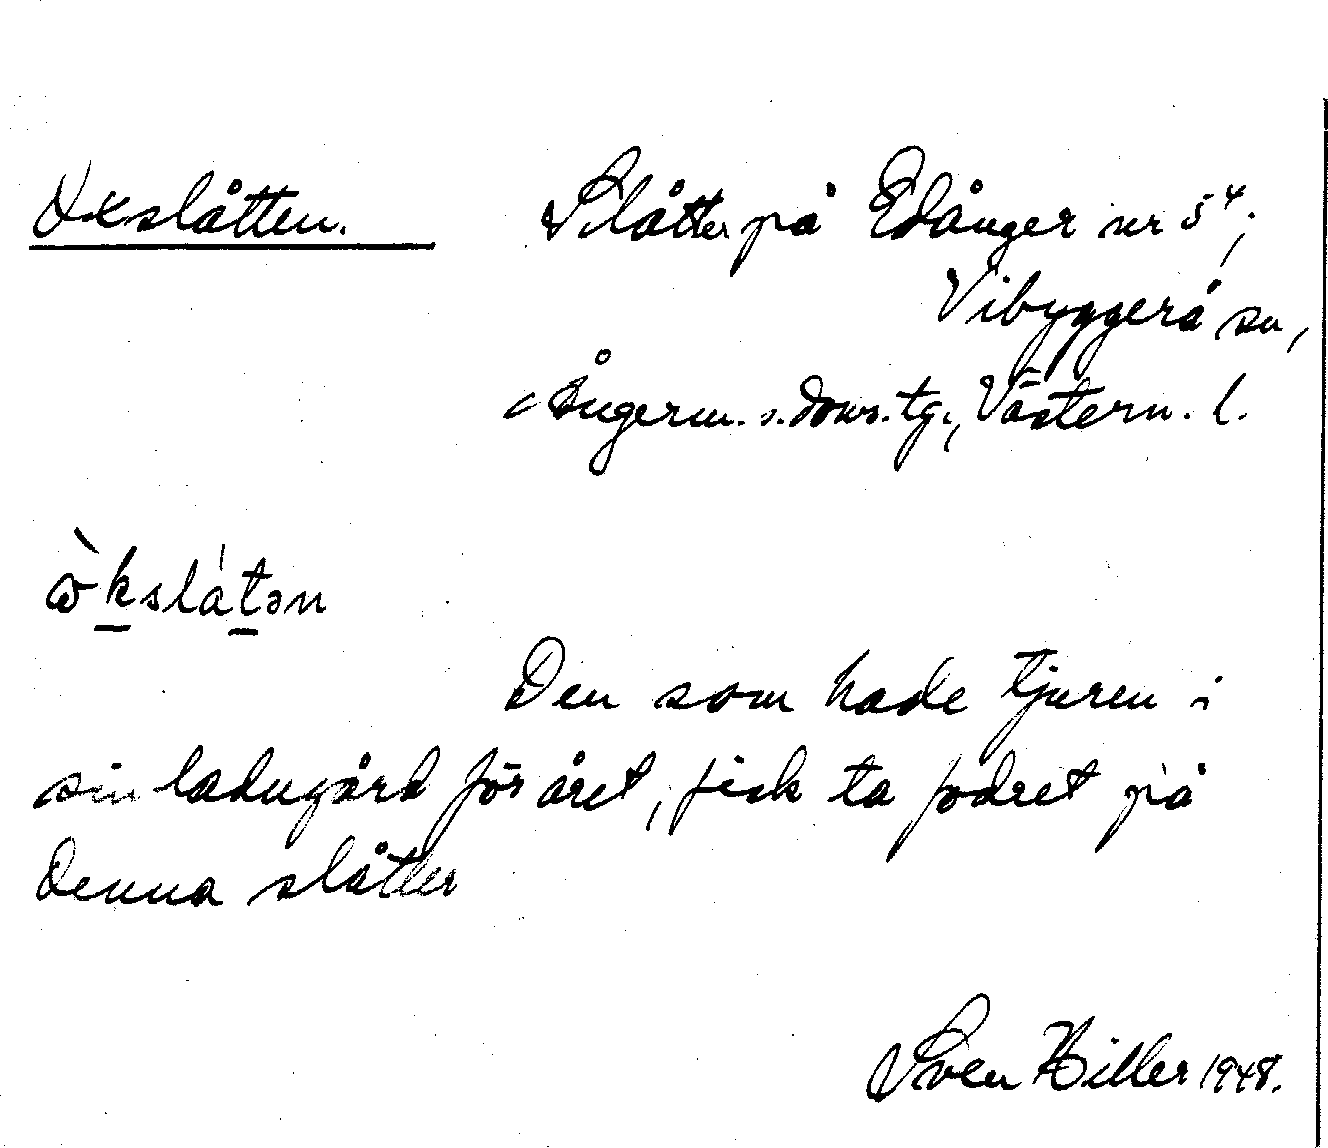 Oxslåtten. Slåtter på Edånger nr 5⁴;
Vibyggerå sn,
Ångerm. s. doms. tg., Västern. l.
ɷ̀kslátən
Den som hade tjuren i
sin ladugård för året, fick ta fodret på
denna slåtter
Sven Hiller 1948.